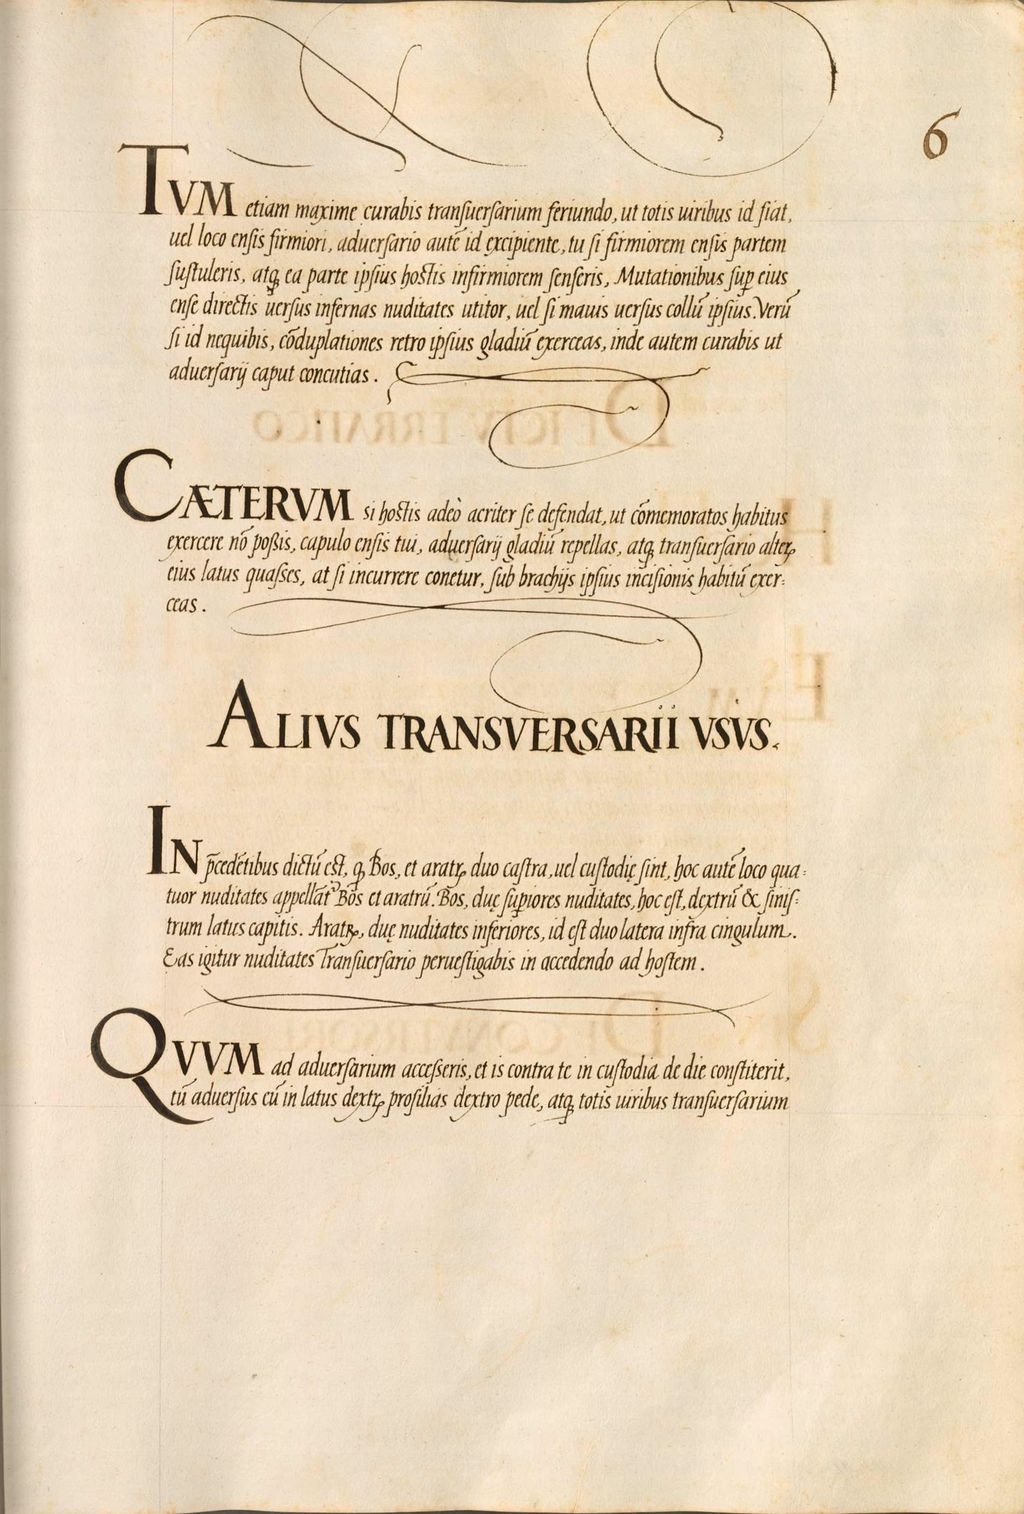 6
TVM etiam maxime curabis tranſuerſarium feriundo, ut totis uiribus id fiat,
uel loco enſis firmiori, aduerſario autē id excipiente, tu ſi firmiorem enſis partem
ſuſtuleris, atq̨ ea parte ipſius hoſtis infirmiorem ſenſeris, Mutationibus ſup eius
enſe directis uerſus infernas nuditates utitor, uel ſi mauis uerſus collū ipſius. Verū
ſi id nequibis, cōduplationes retro ipſius gladiū exerceas, inde autem curabis ut
aduerſarij caput concutias.
CÆTERVM si hoſtis adeò acriter ſe defendat, ut cōmemoratos habitus
exercere nō poßis, capulo enſis tui, aduerſarij gladiū repellas, atq̨ tranſuerſario alteꝝ
eius latus quaſſes, at ſi incurrere conetur, ſub brachijs ipſius inciſionis habitū exer:
ceas.
ALIVS TRANSVERSARII VSVS.
IN p̄cedētibus dictū eſt, q̨ Bos, et aratꝝ duo caſtra, uel cuſtodię ſint, hoc autē loco qua:
tuor nuditates appellāt Bos et aratrū. Bos, duę ſupiores nuditates, hoc eſt, dextrū & ſiniſ:
trum latus capitis. Aratꝝ, duę nuditates inferiores, id eſt duo latera infra cingulum.
Eas igitur nuditates Tranſuerſario perueſtigabis in accedendo ad hoſtem.
QVVM ad aduerſarium acceſſeris, et is contra te in cuſtodia de die conſtiterit,
tū aduerſus eū in latus dextꝝ proſilias dextro pede, atq̨ totis uiribus tranſuerſarium